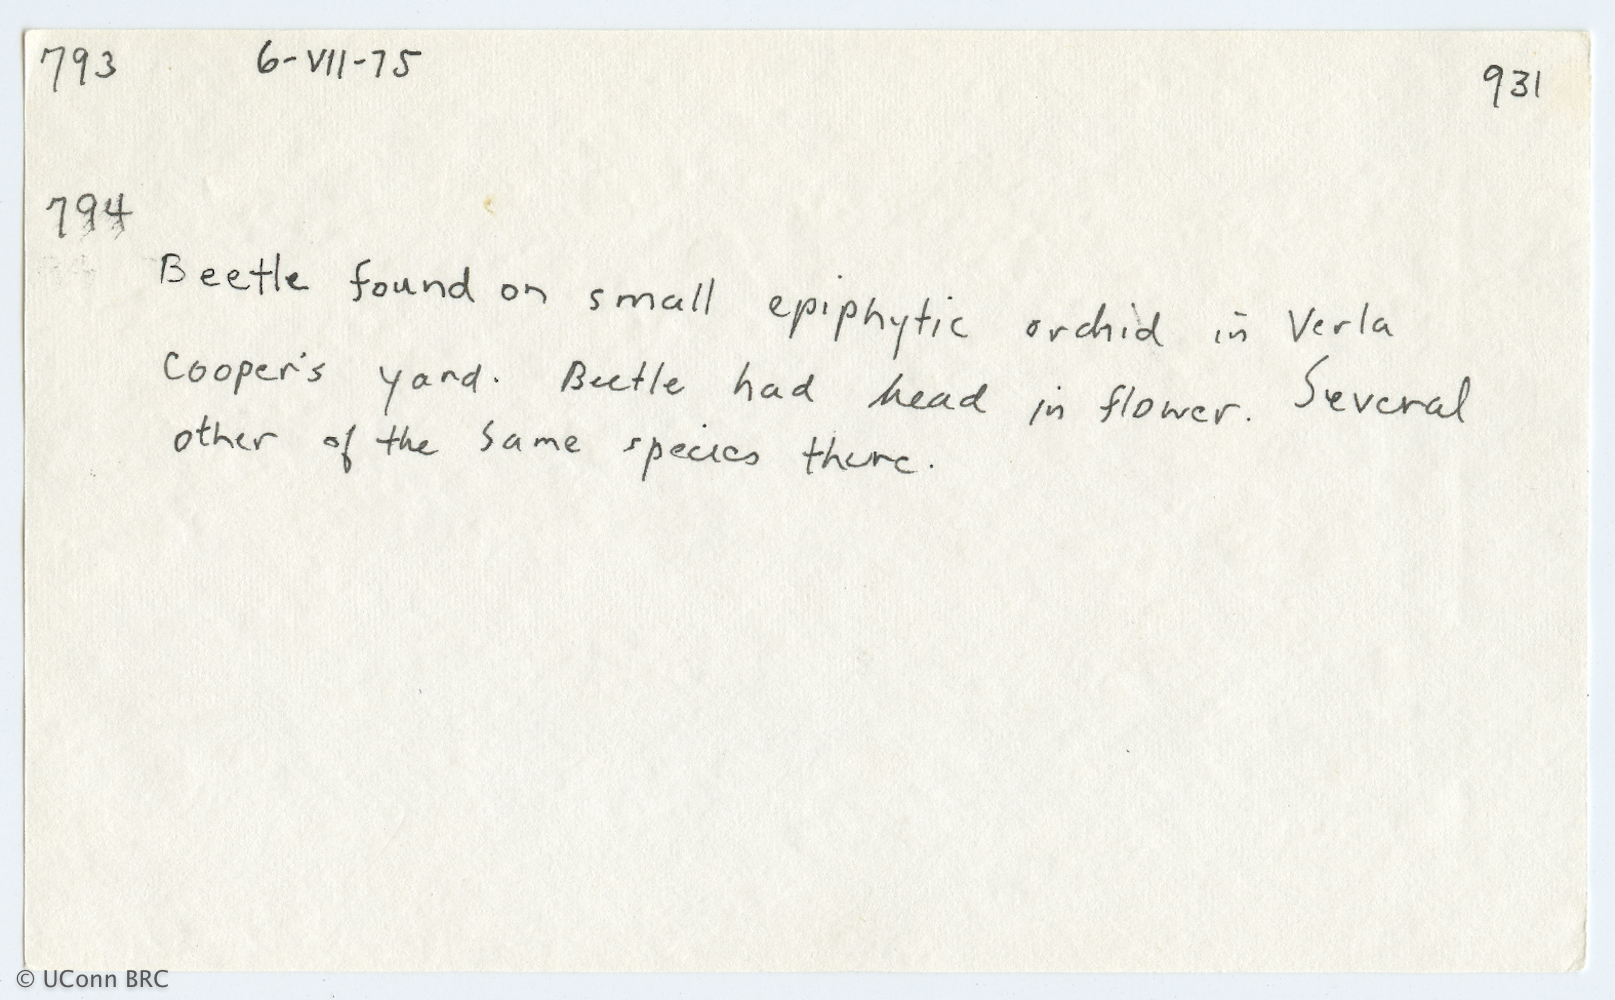 793 6-VII-75 931
794
Beetle found on small epiphytic orchid in Verla
Cooper's yard. Beetle had head in flower. Several
other of the same species there.
© UConn BRC